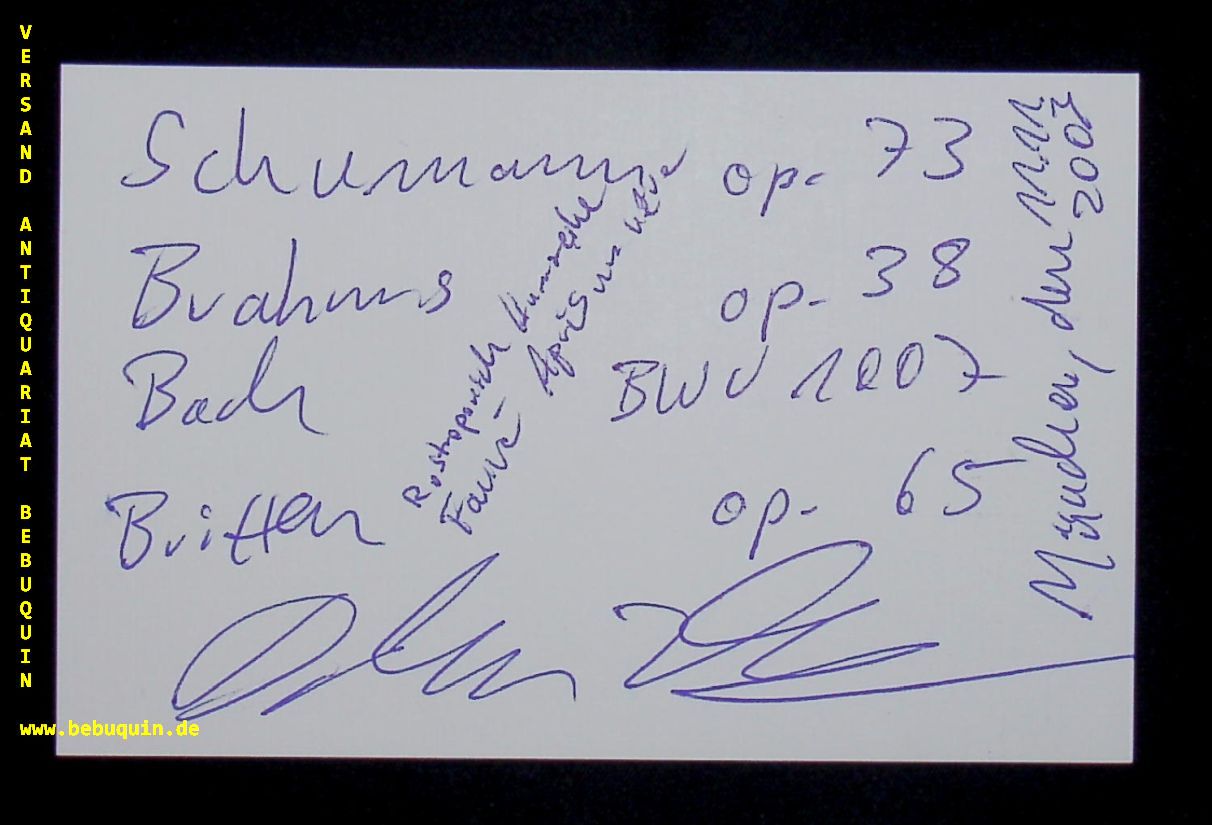 VERSAND ANTIQUARIAT BEBUQUIN
Schumann op. 73
Brahms op. 38
Bach BWV 1007
Britten op. 65
Rostroponisch Humoreske
Fauré - Après un rêve
München, den
2007
www.bebuquin.de